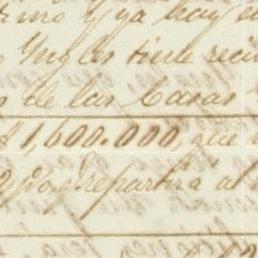 y ya hay
Yngles tiene reci
de las Casas
$1,600.000, que
repartira al